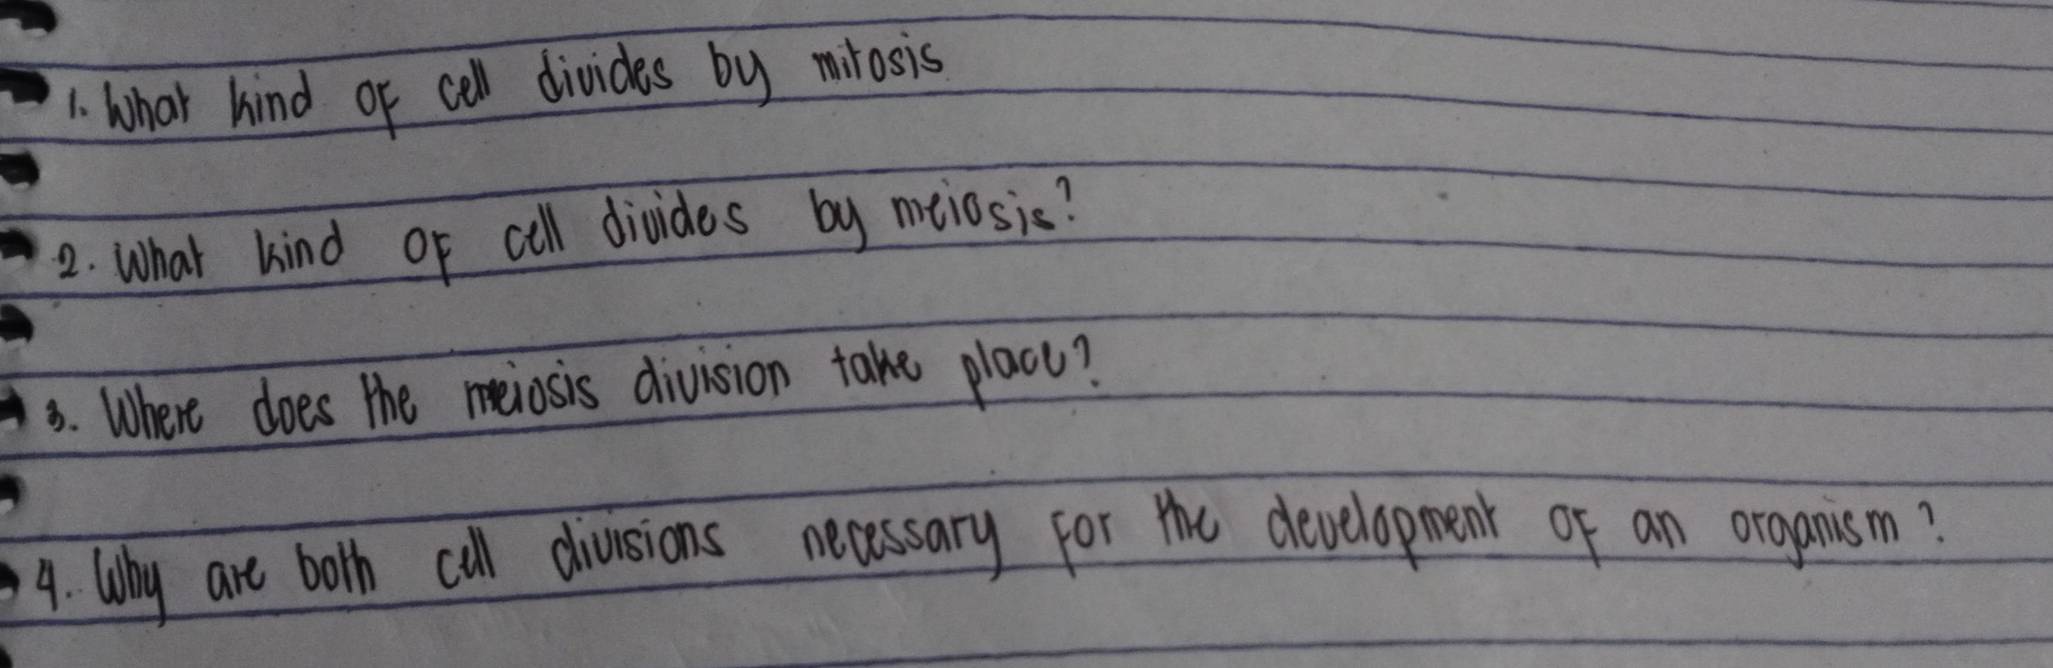 1. What kind of cell divides by mitosis
2. What kind of cell divides by meiosis?
3. Where does the meiosis division take place?
4. Why are both cell divisions necessary for the development of an organism?